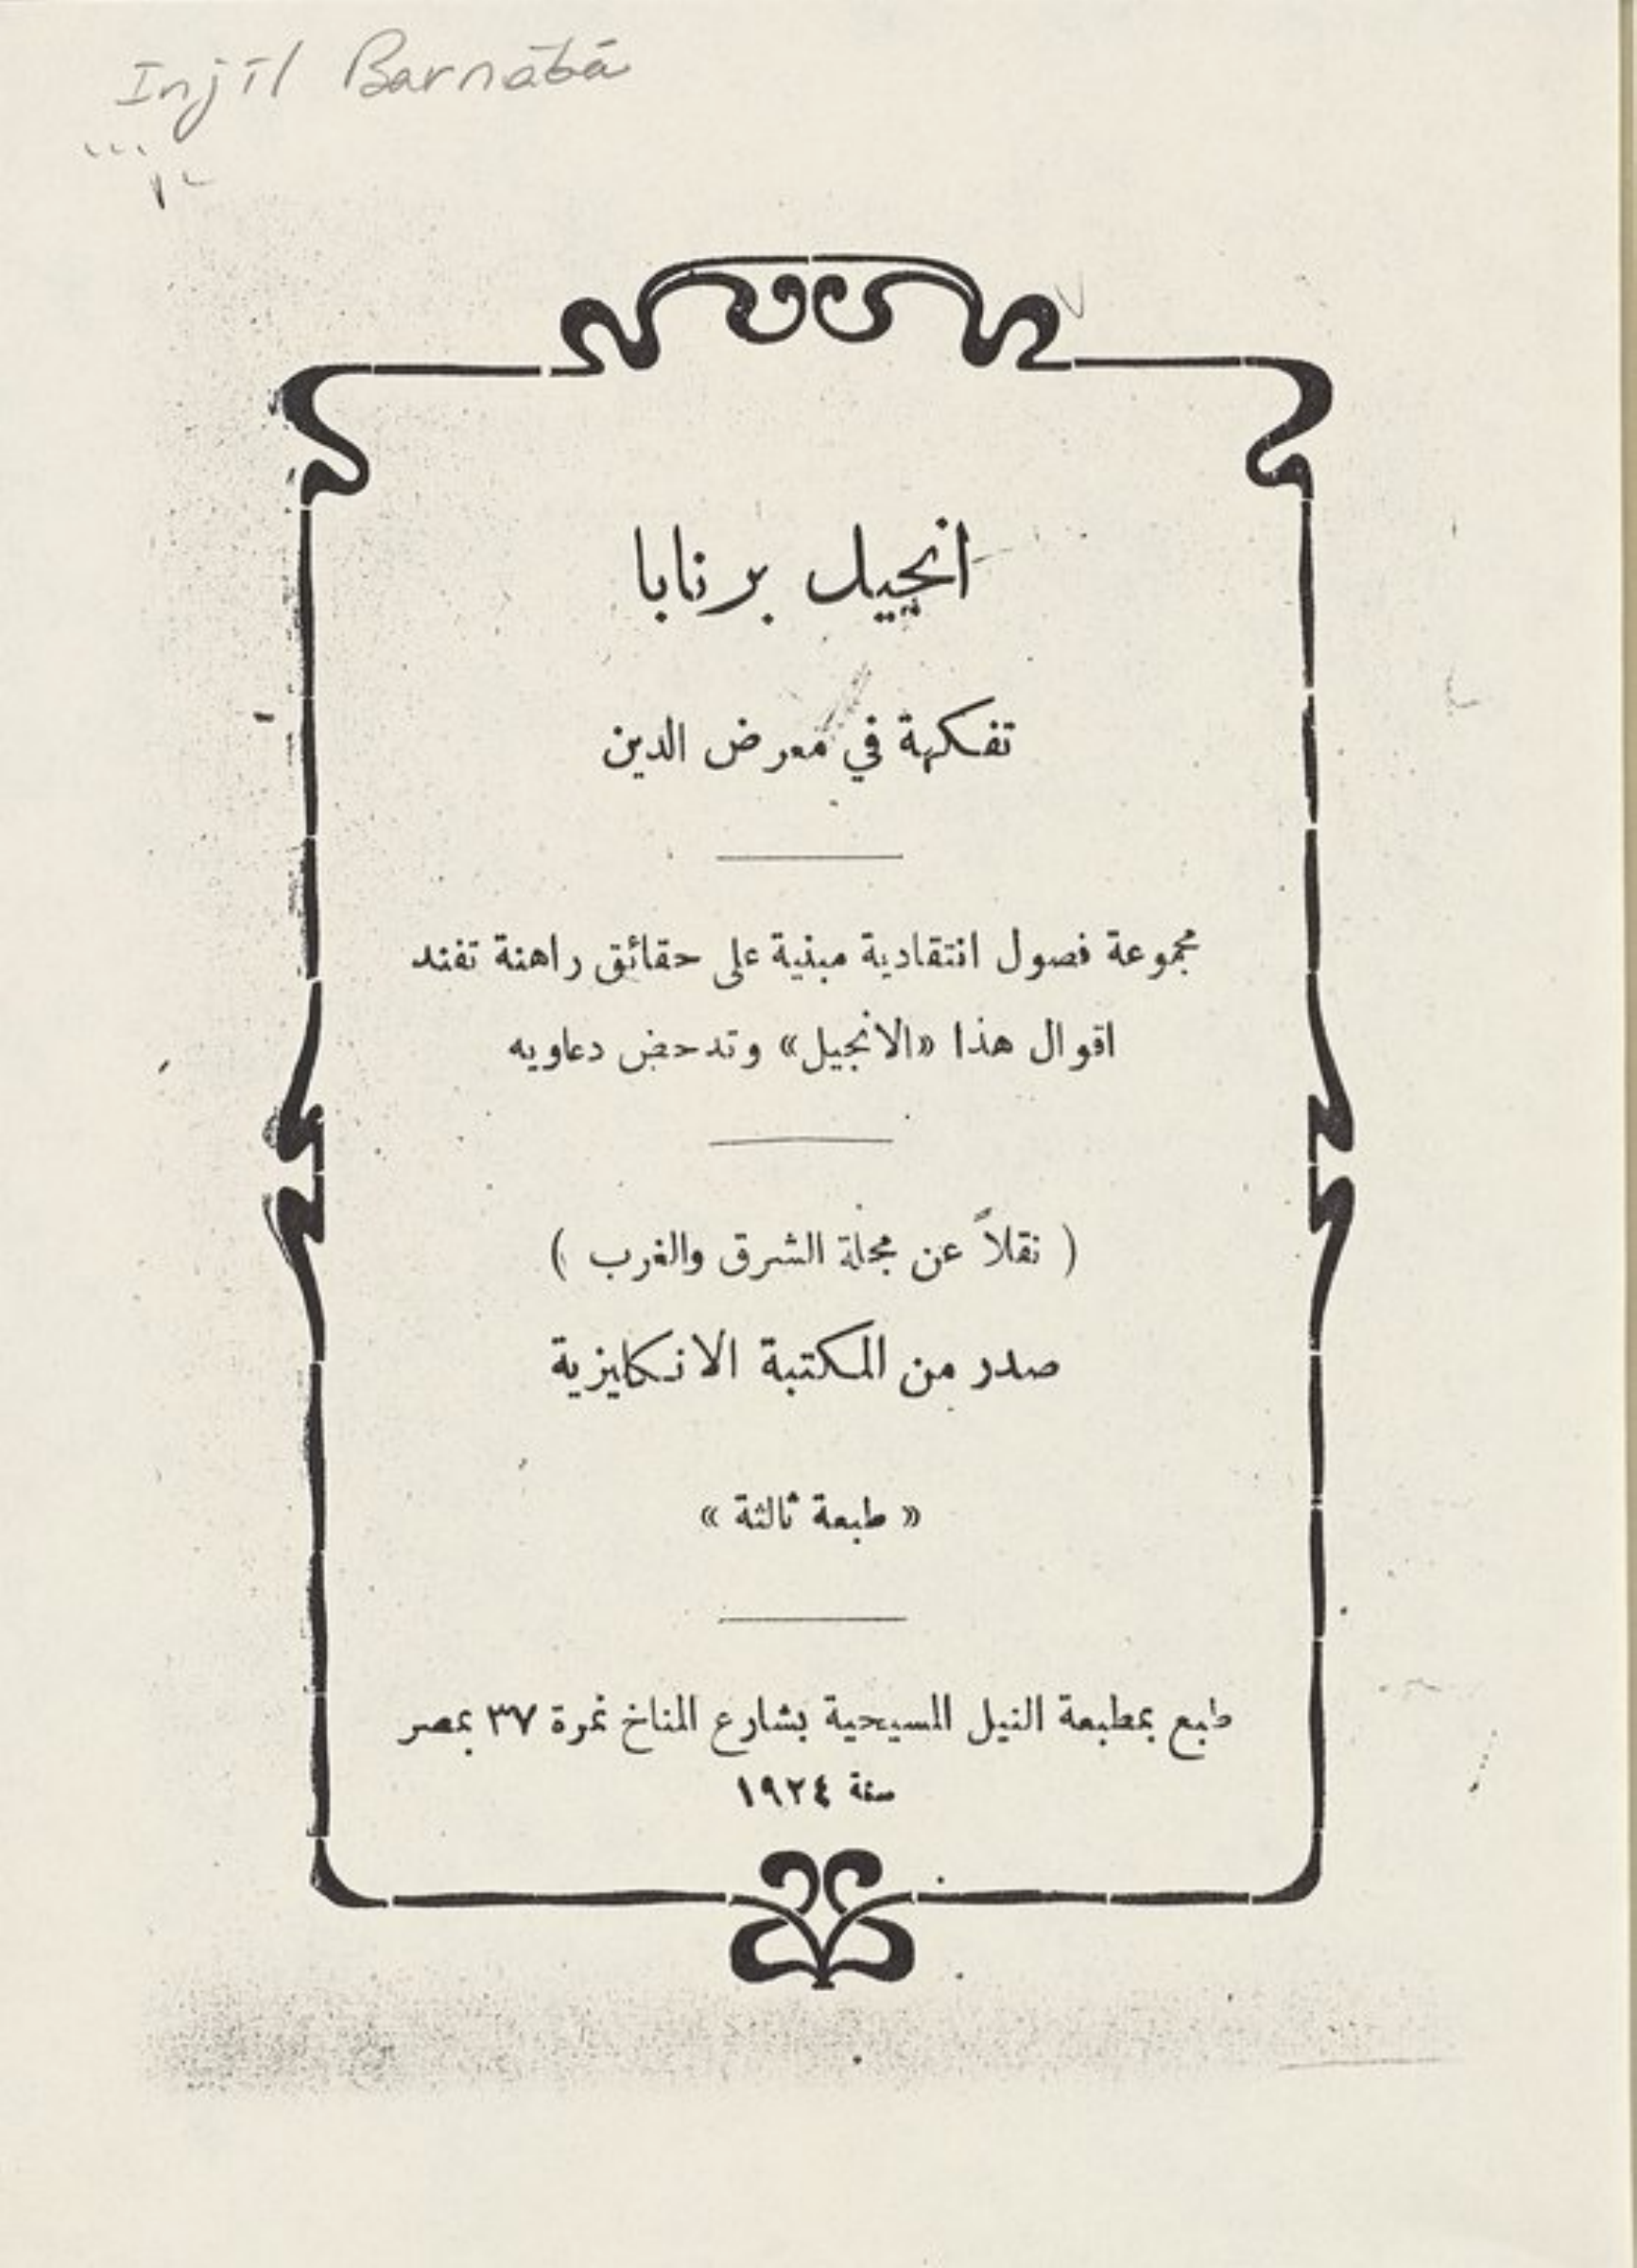 Injīl Barnābā
انجيل برنابا
تفكهة في معرض الدين
مجموعة فصول انتقادية مبنية على حقائق راهنة تفند
اقوال هذا «الانجيل» وتدحض دعاويه
( نقلاً عن مجلة الشرق والغرب )
صدر من المكتبة الانكليزية
« طبعة ثالثة »
طبع بمطبعة النيل المسيحية بشارع المناخ نمرة ٣٧ بمصر
سنة ١٩٢٤